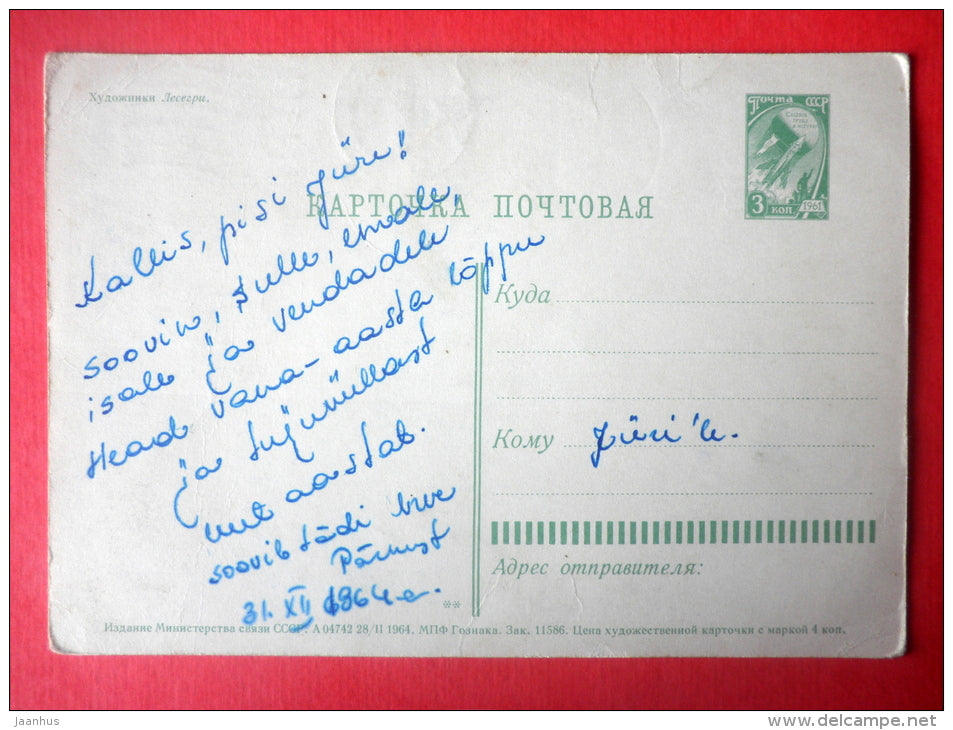 Художники Лесегри.
ПОЧТА СССР
3 КОП
1961
КАРТОЧКА ПОЧТОВАЯ
Kallis, pisi Jüri!
soovin, sulle, emale,
isale ja vendadele
Head vana-aasta lõppu
ja tujuküllast
uut aastat.
soovib tädi
Pärnust
31. XII 1964 a.
Куда
Кому Jüri'le.
Адрес отправителя:
**
Издание Министерства связи СССР. А 04742 28/II 1964. МПФ Гознака. Зак. 11586. Цена художественной карточки с маркой 4 коп.
jaanhus
www.delcampe.net